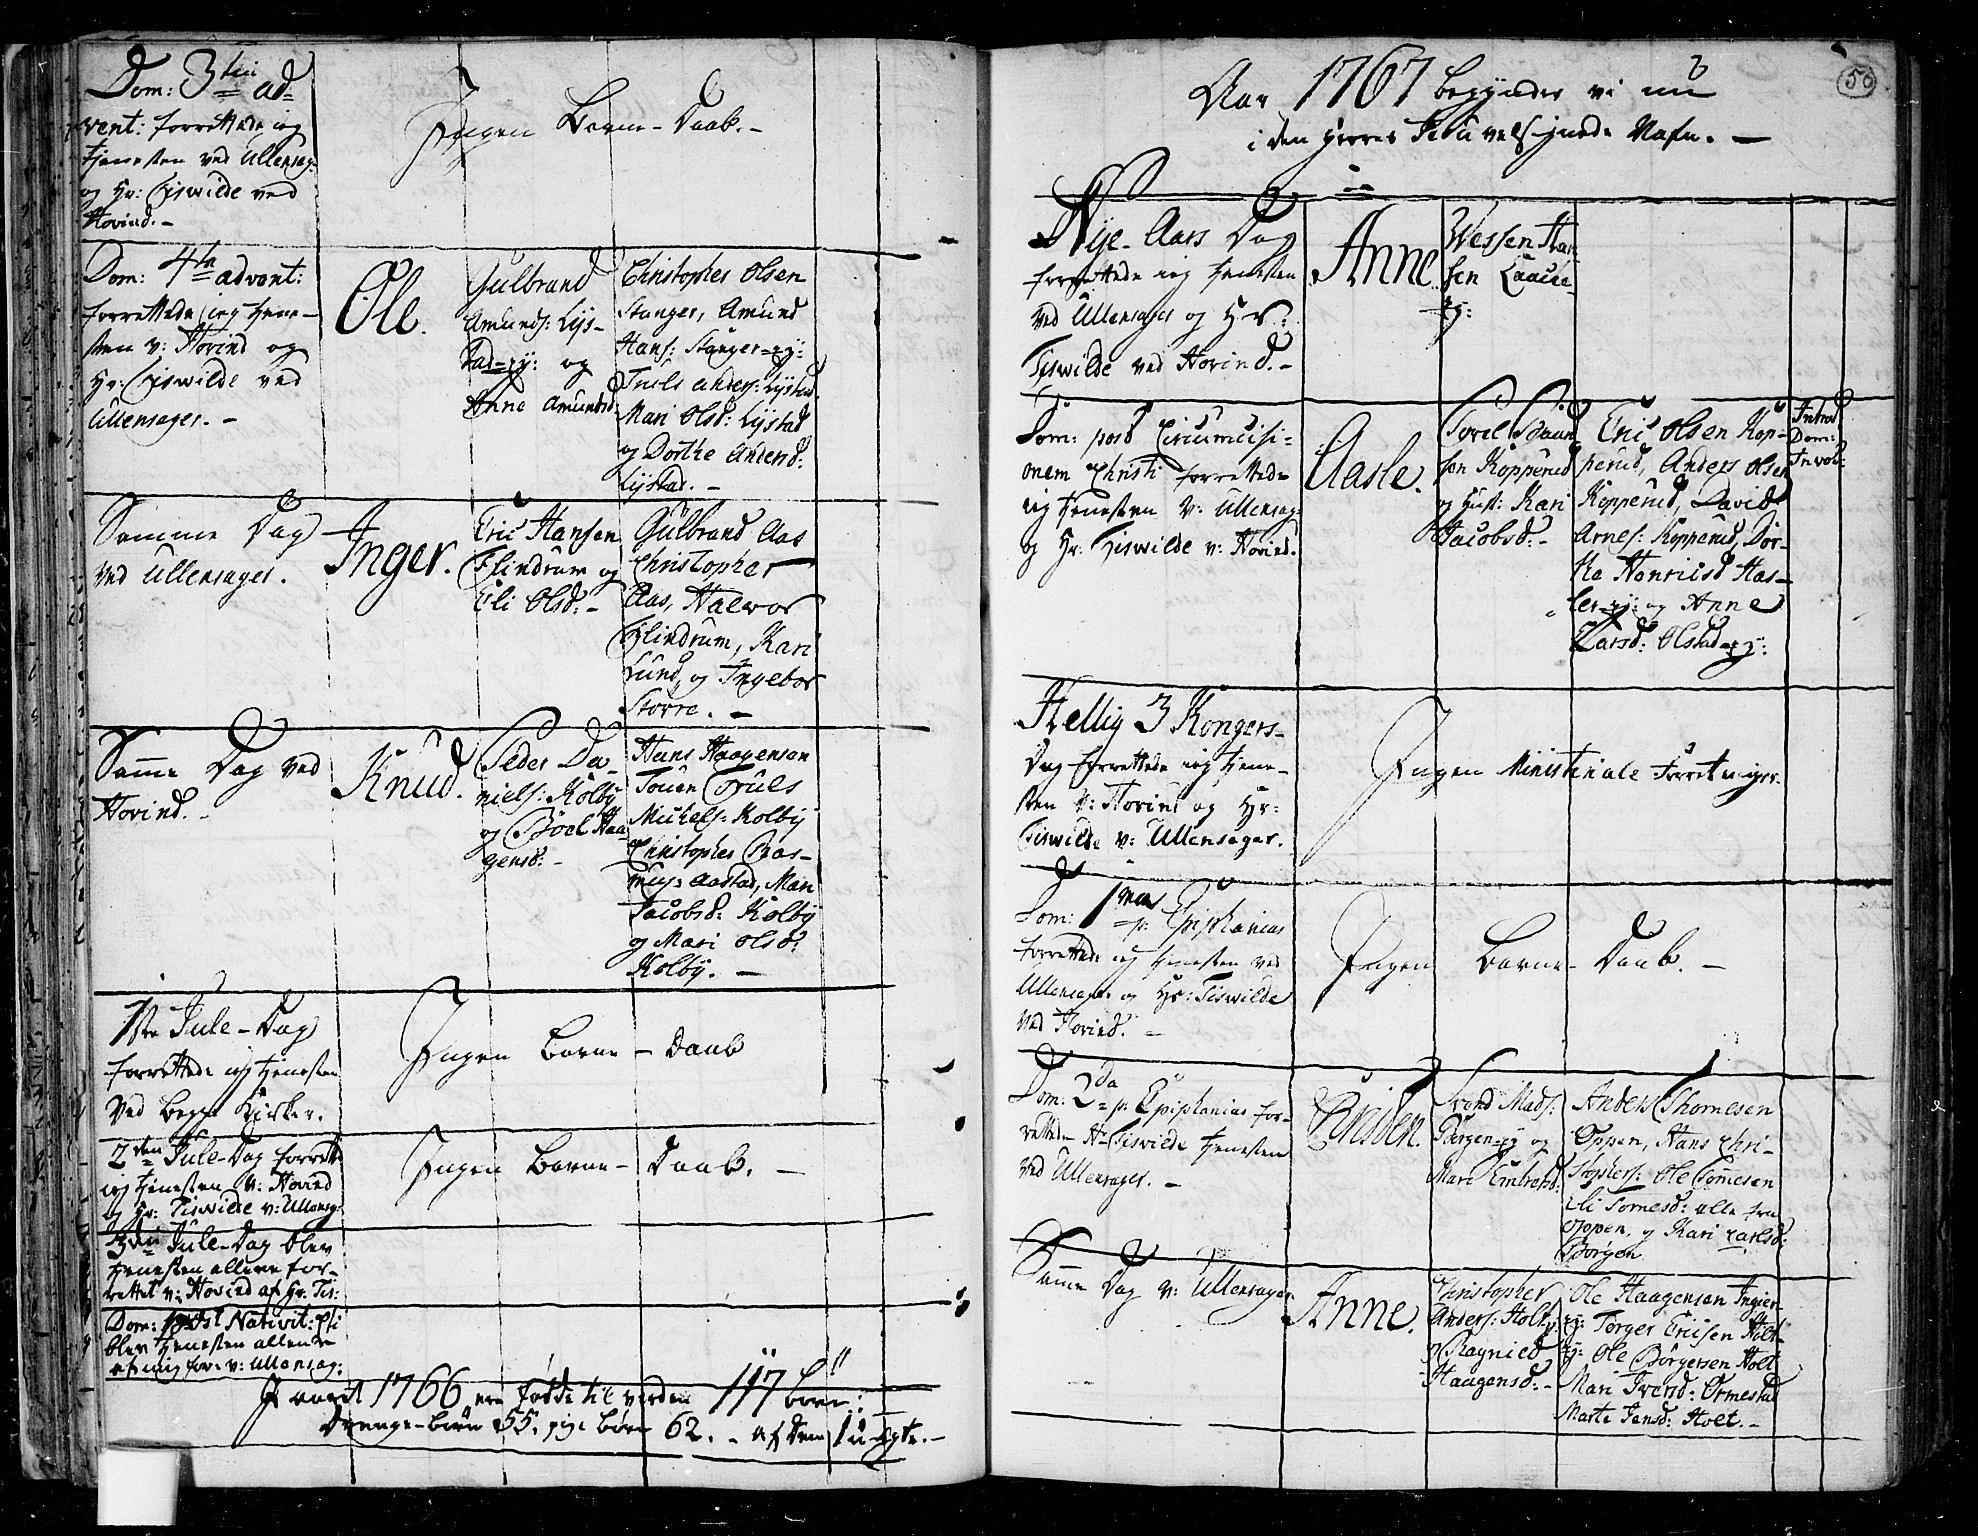 Dom: 3tia ad=
vent: forrettede ieg
tjenesten ved Ullensag:
og Hr: Tiswilde ved
Hovind. -
Ingen Børne - Daab. -
Dom: 4ta advent:
forrettede ieg tjene-
sten v: Hovind og
Hr: Tiswilde ved
Ullensager. -
Ole.
Gulbrand
Amunds: Lys-
tad=ey: og
Anne Amundsd.
Christopher Olsen
Stanger, Amund
Hans: Stanger=ey:
Truls Anders: Lystad
Mari Olsd: Lystad
og Dorthe Andersd:
Lystad. -
Samme Dag
ved Ullensager.
Inger.
Eric Hansen
Flindrum og
Eli Olsd: -
Gulbrand Aas
Christopher
Aas, Halvor
Flindrum, Kari
Lund, og Ingebor
Storre. -
Samme Dag ved
Hovind. -
Knud.
Peder Da-
niels: Kolby
og Böel Haa
gensd: -
Hans Haagensen
Touen Truls
Michels: Kolby
Christopher Ras-
mus: Aastad, Mari
Jacobsd: Kolby
og Mari Olsd:
Kolby. -
1ste Jule-Dag
forrettede ieg tjenesten
ved begge Kirker.
Ingen Børne - Daab
2den Jule-Dag forrette
ieg tjenesten v: Hovind
og Hr: Tiswilde v: Ullensag:
Ingen Børne - Daab. -
3die Jule-Dag blev
tjenesten allene for-
rettet v: Hovind af Hr. Tis:
Dom: post Nativit: Xti
blev tjenesten allene
af mig forr v: Ullensag:
I aaret 1766 ere fødde til verden 117 børn:
Drenge-børn 55. pige børn 62. - af dem 1 u-ægte. -
50
Aar 1767 begynder vi nu
i den Herres Jesu velsignede Nafn. -
Nye-Aars Dag
forrettede ieg tjenesten
ved Ullensager og Hr:
Tiswilde ved Hovind. -
Anne
Wessen Han
sen
ey:
Dom: post Circumcisi-
onem Christi forrettede
ieg tjenesten v: Ullensag:
og Hr: Tiswilde v: Hovind.
Aasle.
sen Kopperud
og Hust: Kari
Jacobsd: -
Eric Olsen Kop-
perud, Anders Olsen
Kopperud, David
Arnes: Kopperud, Dor-
the Henricsd Has-
ler=ey: og Anne
Larsd: Olstad=ey:
Introd
Dom:
Invoc:
Hellig 3 Kongers-
Dag forrettede ieg tjene-
sten v: Hovind og Hr:
Tiswilde v: Ullensager.
Ingen Ministeriale Forretninger.
Dom: 1ma p: Epiphanias
forrettede ieg tjenesten ved
Ullensager og Hr: Tiswilde
ved Hovind. -
Ingen Børne - Daab. -
Dom: 2da p: Epiphanias for-
rettede Hr Tiswilde tjenesten
ved Ullensager. -
Preben.
Trond Mads:
Borgen=ey og
Mari Embretsd:
Anders Thomesen
Oppen, Hans Chri-
stophers: Ole Tomesen
Eli Tomesd: alle fra
Oppen, og Kari Carlsd:
Borgen
Samme Dag v: Ullensager
Anne.
Christopher
Anders: Holt ey:
og Ragnild
Haagensd: -
Ole Haagensen Ingier-
ey: Torger Ericsen Holt-
ey: Ole Börgersen Holt
Mari Iversd: Ormestad
Marte Jensd: Holt. -